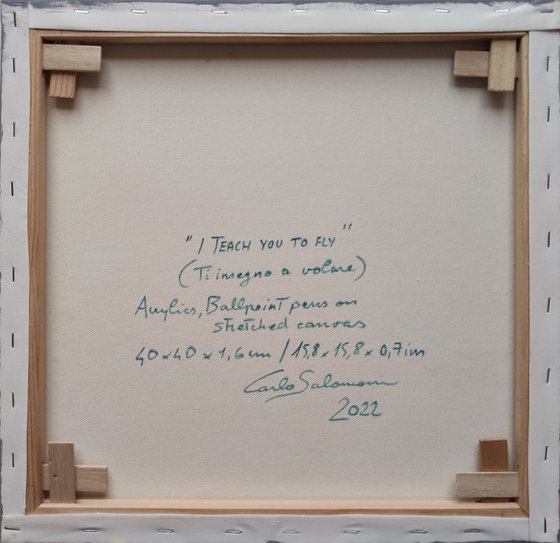 "I TEACH YOU TO FLY"
(Ti insegno a volare)
Acrylics, Ballpoint pens on
stretched canvas
40x40x1,6cm / 15,8x15,8x0,7im
Carlo Salomoni
2022